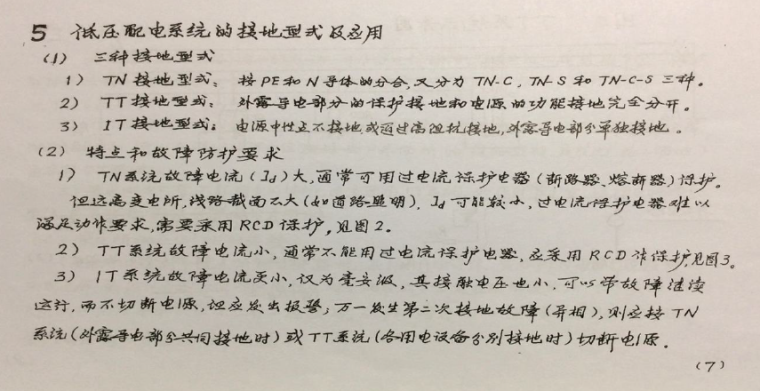 5 低压配电系统的接地型式及应用
(1) 三种接地型式
1) TN接地型式：按PE和N导体的分合,又分为TN-C, TN-S和TN-C-S三种。
2) TT接地型式：外露导电部分的保护接地和电源的功能接地完全分开。
3) IT接地型式：电源中性点不接地或通过高阻抗接地,外露导电部分单独接地。
(2) 特点和故障防护要求
1) TN系统故障电流(Id)大,通常可用过电流保护电器(断路器、熔断器)保护。
但远离变电所,线路截面不大(如道路照明), Id可能较小,过电流保护电器难以
满足动作要求,需要采用RCD保护,见图2。
2) TT系统故障电流小,通常不能用过电流保护电器,应采用RCD作保护,见图3。
3) IT系统故障电流更小,仅为毫安级,其接触电压也小,可以带故障继续
运行,而不切断电源,但应发出报警;万一发生第二次接地故障(异相),则应按TN
系统(外露导电部分共同接地时)或TT系统(各用电设备分别接地时)切断电源。
(7)